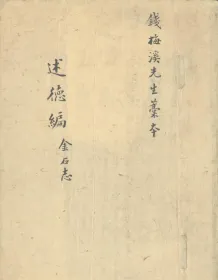 錢梅溪先生藳本
述德編 金石志